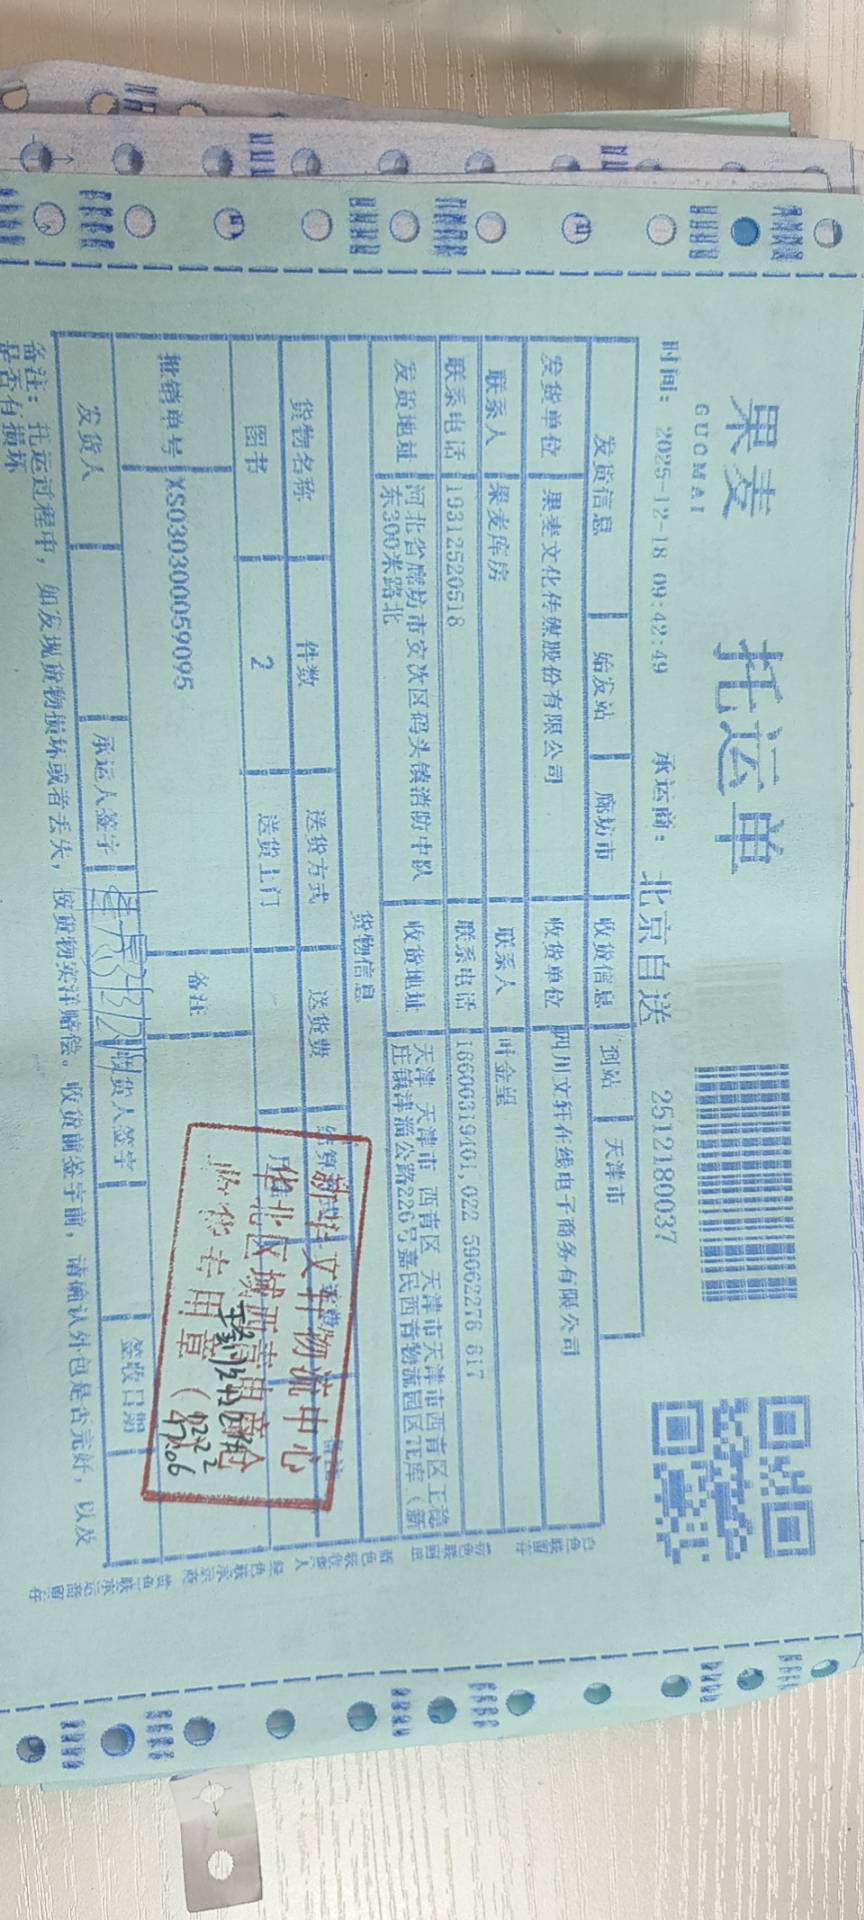 果麦
GUOMAI
托运单
时间: 2025-12-18 09:42:49 承运商: 北京自送 2512180037
发货信息 始发站 廊坊市 收货信息 到站 天津市
发货单位 果麦文化传媒股份有限公司 收货单位 四川文轩在线电子商务有限公司
联系人 果麦库房 联系人 叶金望
联系电话 19312520518 联系电话 18600319401,022 59062276 817
发货地址 河北省廊坊市安次区码头镇消防中队
东300米路北
收货地址 天津 天津市 西青区 天津市天津市西青区王稳
庄镇津淄公路226号嘉民西青物流园区 库(新
货物信息
货物名称 件数 送货方式 送货费 备注
图书 2 送货上门
批销单号 XS030300059095 备注
发货人 承运人签字 收货人签字 签收日期
备注: 托运过程中, 如发现货物损坏或者丢失, 按货物实洋赔偿。收货前签字前, 请确认外包是否完好, 以及
是否有损坏
新华文轩物流中心
华北区域西青电商仓
收货专用章(
12.22
17:06